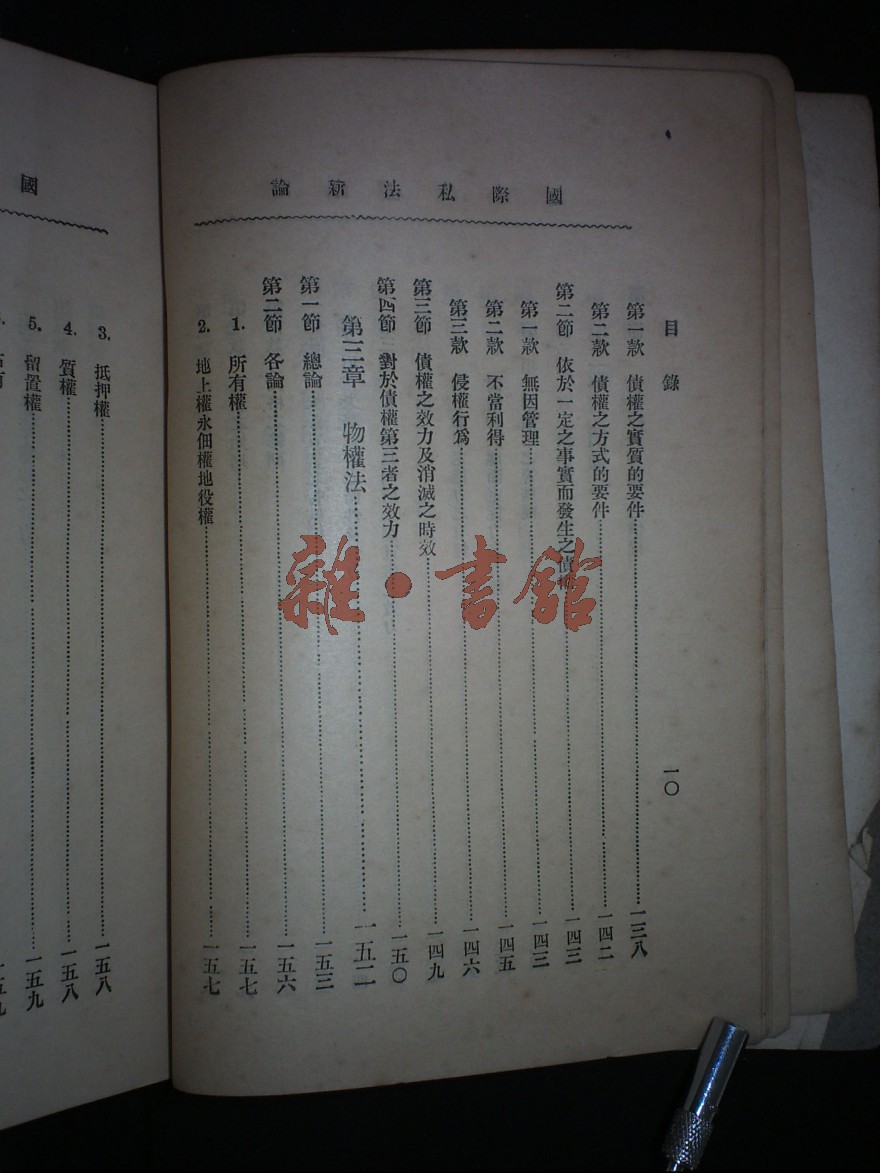 國際私法新論
目錄
一〇
第一款 債權之實質的要件……一三八
第二款 債權之方式的要件……一四二
第二節 依於一定之事實而發生之債權……一四三
第一款 無因管理……一四三
第二款 不當利得……一四五
第三款 侵權行爲……一四六
第三節 債權之效力及消滅之時效……一四九
第四節 對於債權第三者之效力……一五〇
第三章 物權法……一五二
第一節 總論……一五三
第二節 各論……一五六
1. 所有權……一五七
2. 地上權永佃權地役權……一五七
國
3. 抵押權……一五八
4. 質權……一五八
5. 留置權……一五九
雜·書館